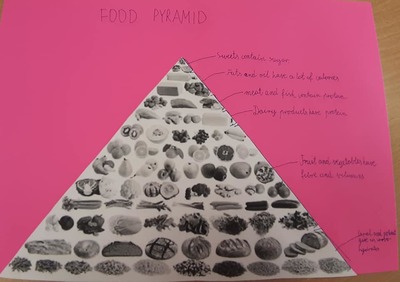 FOOD PYRAMID
sweets contain sugar
Fats and oil have a lot of calories
meat and fish contain protein
Dairy products have protein
Fruit and vegetables have
fibre and vitamins
Cereal and
give us
hydrates